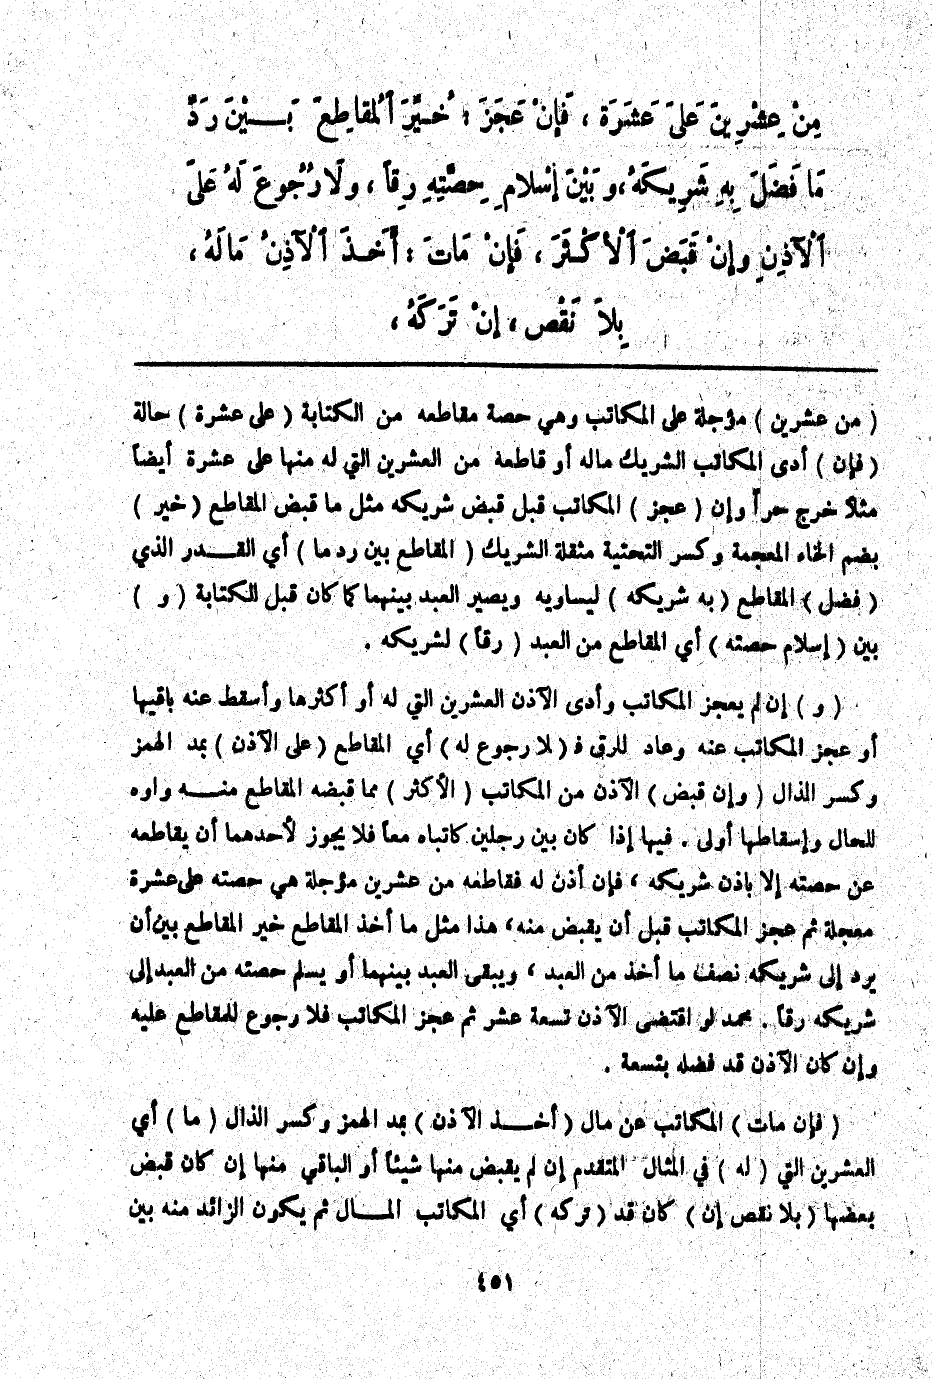 مِنْ عِشْرِينَ عَلَى عَشَرَة ، فَإِنْ عَجَزَ : خُيِّرَ اَلْمُقَاطِعَ بَيْنَ رَدِّ
مَا فَضَلَ بِهِ شَرِيكَهُ، وبَيْنَ إِسْلامِ حِصَّتِهِ رِقاً ، ولَا رُجُوعَ لَهُ عَلَى
اَلْآذِنِ وإِنْ قَبَضَ اَلْأكْثَرَ ، فَإِنْ مَاتَ : أَخَذَ اَلْآذِنُ مَالَهُ ،
بِلاَ نَقْص ، إنْ تَرَكَهُ ،
( من عشرين ) مؤجلة على المكاتب وهي حصة مقاطعه من الكتابة ( على عشرة ) حالة
( فإن ) أدى المكاتب الشريك ماله أو قاطعة من العشرين التي له منها على عشرة أيضاً
مثلاً خرج حراً وإن ( عجز ) المكاتب قبل قبض شريكه مثل ما قبض المقاطع ( خير )
بضم الخاء المعجمة وكسر التحتية مثقلة الشريك ( المقاطع بين رد ما ) أي القــدر الذي
( فضل ) المقاطع ( به شريكه ) ليساويه ويصير العبد بينهما كما كان قبل للكتابة ( و )
بين ( إسلام حصته ) أي المقاطع من العبد ( رقاً ) لشريكه .
( و ) إن لم يعجز المكاتب وأدى الآذن العشرين التي له أو أكثرها وأسقط عنه باقيها
أو عجز المكاتب عنه وعاد للرق فـ ( لا رجوع له ) أي المقاطع ( على الآذن ) بمد الهمز
وكسر الذال ( وإن قبض ) الآذن من المكاتب ( الأكثر ) مما قبضه المقاطع منــه واوه
للحال وإسقاطها أولى . فيها إذا كان بين رجلين كاتباه معاً فلا يجوز لأحدهما أن يقاطعه
عن حصته إلا باذن شريكه ، فإن أذن له فقاطعه من عشرين مؤجلة هي حصته على عشرة
معجلة ثم عجز المكاتب قبل أن يقبض منه، هذا مثل ما أخذ المقاطع خير المقاطع بين أن
يرد إلى شريكه نصف ما أخذ من العبد ، ويبقى العبد بينهما أو يسلم حصته من العبد إلى
شريكه رقاً . محمد لو اقتضى الآذن تسعة عشر ثم عجز المكاتب فلا رجوع للمقاطع عليه
وإن كان الآذن قد فضله بتسعة .
( فإن مات ) المكاتب عن مال ( أخــذ الآذن ) بمد الهمز وكسر الذال ( ما ) أي
العشرين التي ( له ) في المثال المتقدم إن لم يقبض منها شيئاً أو الباقي منها إن كان قبض
بعضها ( بلا نقص إن ) كان قد ( تركه ) أي المكاتب المــال ثم يكون الزائد منه بين
٤٥١